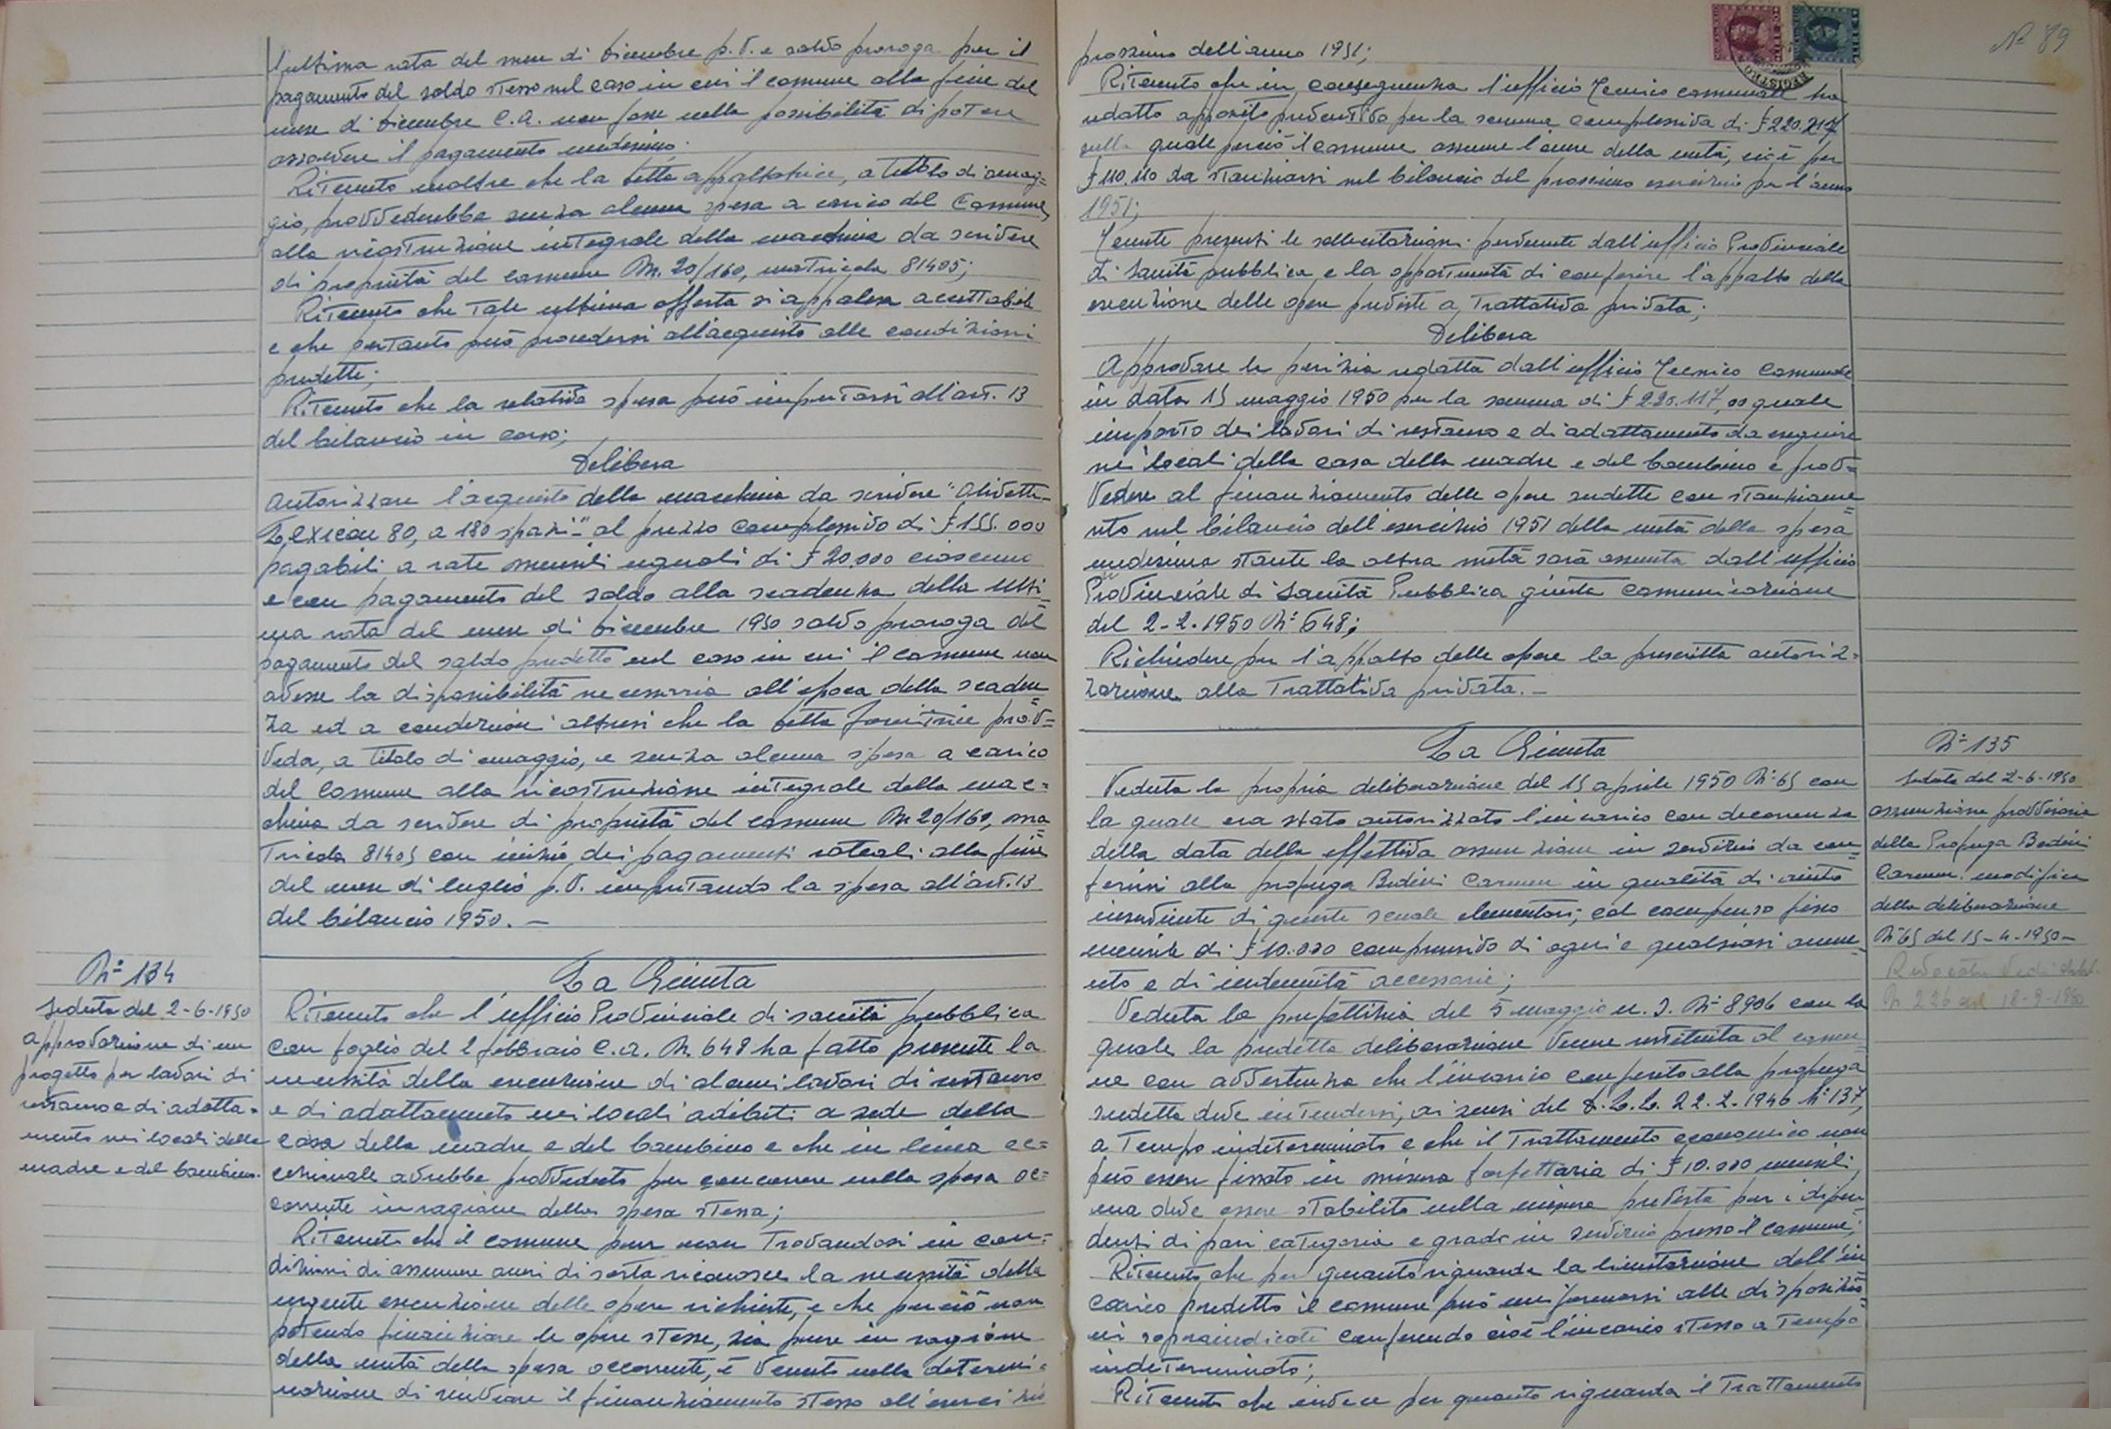 l'ultima rata del mese di Dicembre p.v. e salvo proroga per il
pagamento del saldo stesso nel caso in cui il comune alla fine del
mese di Dicembre c.a. non fosse nella possibilità di poter
assolvere il pagamento medesimo.
Ritenuto inoltre che la Ditta appaltatrice, a titolo di omag-
gio, provvederebbe senza alcuna spesa a carico del Comune,
alla ricostruzione integrale della macchina da scrivere
di proprietà del comune M. 20/160, matricola 81405;
Ritenuto che tale ultima offerta si appalesa accettabile
e che pertanto può procedersi all'acquisto alle condizioni
predette;
Ritenuto che la relativa spesa può imputarsi all'art. 13
del bilancio in corso;
Delibera
Autorizzare l'acquisto della macchina da scrivere "Olivetti-
Lexicon 80, a 180 spazi" al prezzo complessivo di £ 155.000
pagabili a rate mensili uguali di £ 20.000 ciascuna
e con pagamento del saldo alla scadenza della ulti=
ma rata del mese di Dicembre 1950 salvo proroga del
pagamento del saldo predetto nel caso in cui il comune non
avesse la disponibilità necessaria all'epoca della scaden=
za ed a condizione altresì che la Ditta fornitrice prov=
veda, a titolo di omaggio, e senza alcuna spesa a carico
del Comune alla ricostruzione integrale della mac=
china da scrivere di proprietà del comune M. 20/160, ma=
tricola 81405 con inizio dei pagamenti rateali alla fine
del mese di luglio p.v. imputando la spesa all'art. 13
del bilancio 1950. -
N° 134
Seduta del 2-6-1950
Approvazione di un
progetto per lavori di
restauro e di adatta-
mento nei locali della
madre e del bambino.
La Giunta
Ritenuto che l'ufficio Provinciale di sanità pubblica
con foglio del 2 febbraio c.a. N. 648 ha fatto presente la
necessità della esecuzione di alcuni lavori di restauro
e di adattamento nei locali adibiti a sede della
casa della madre e del bambino e che in linea ec=
cezionale avrebbe provveduto per concorrere nella spesa oc=
corrente in ragione della spesa stessa;
Ritenuto che il comune pur non trovandosi in con=
dizioni di assumere oneri di sorta riconosce la necessità della
urgente esecuzione delle opere richieste, e che perciò non
potendo finanziare le opere stesse, sia pure in ragione
della metà della spesa occorrente, è venuto nella determi=
nazione di rinviare il finanziamento stesso all'esercizio
N° 89
prossimo dell'anno 1951;
Ritenuto che in conseguenza l'ufficio Tecnico comunale ha
redatto apposito preventivo per la somma complessiva di £ 220.217
sulla quale perciò il comune assume l'onere della metà, cioè per
£ 110.110 da stanziarsi nel bilancio del prossimo esercizio per l'anno
1951;
Tenute presenti le sollecitazioni pervenute dall'ufficio Provinciale
di Sanità pubblica e la opportunità di conferire l'appalto della
esecuzione delle opere previste a trattativa privata;
Delibera
Approvare la perizia redatta dall'ufficio Tecnico Comunale
in data 15 maggio 1950 per la somma di £ 220.117,00 quale
importo dei lavori di restauro e di adattamento da eseguire
nei locali della casa della madre e del bambino e prov=
vedere al finanziamento delle opere sudette con stanziame=
nto nel bilancio dell'esercizio 1951 della metà della spesa
medesima stante la altra metà sarà assunta dall'ufficio
Provinciale di Sanità Pubblica giusta comunicazione
del 2-2-1950 N° 648;
Richiedere per l'appalto delle opere la prescritta autoriz-
zazione alla trattativa privata. -
La Giunta
N° 135
Seduta del 2-6-1950
assunzione provvisoria
della Profuga Bedini
Carmen. modifica
della deliberazione
N° 65 del 15-4-1950-
Revocata vedi delib.
N. 226 del 18-9-1950
Veduta la propria deliberazione del 15 aprile 1950 N° 65 con
la quale era stato autorizzato l'incarico con decorrenza
della data della effettiva assunzione in servizio da con=
ferirsi alla profuga Bedini Carmen in qualità di aiuto
inserviente di queste scuole elementari; col compenso fisso
mensile di £ 10.000 comprensivo di ogni e qualsiasi aume=
nto e di indennità accessorie;
Veduta la prefettizia del 5 maggio u.s. N° 8906 con la
quale la predetta deliberazione venne restituita al comu=
ne con avvertenza che l'incarico conferito alla profuga
sudetta deve intendersi, ai sensi del D.L.L. 22.2.1946 N° 137,
a tempo indeterminato e che il trattamento economico non
può essere fissato in misura forfettaria di £ 10.000 mensili,
ma deve essere stabilito nella misura prevista per i dipen=
denti di pari categoria e grado in servizio presso il comune;
Ritenuto che per quanto riguarda la limitazione dell'in=
carico predetto il comune può uniformarsi alle disposizio=
ni sopraindicate conferendo cioè l'incarico stesso a tempo
indeterminato;
Ritenuto che invece per quanto riguarda il trattamento